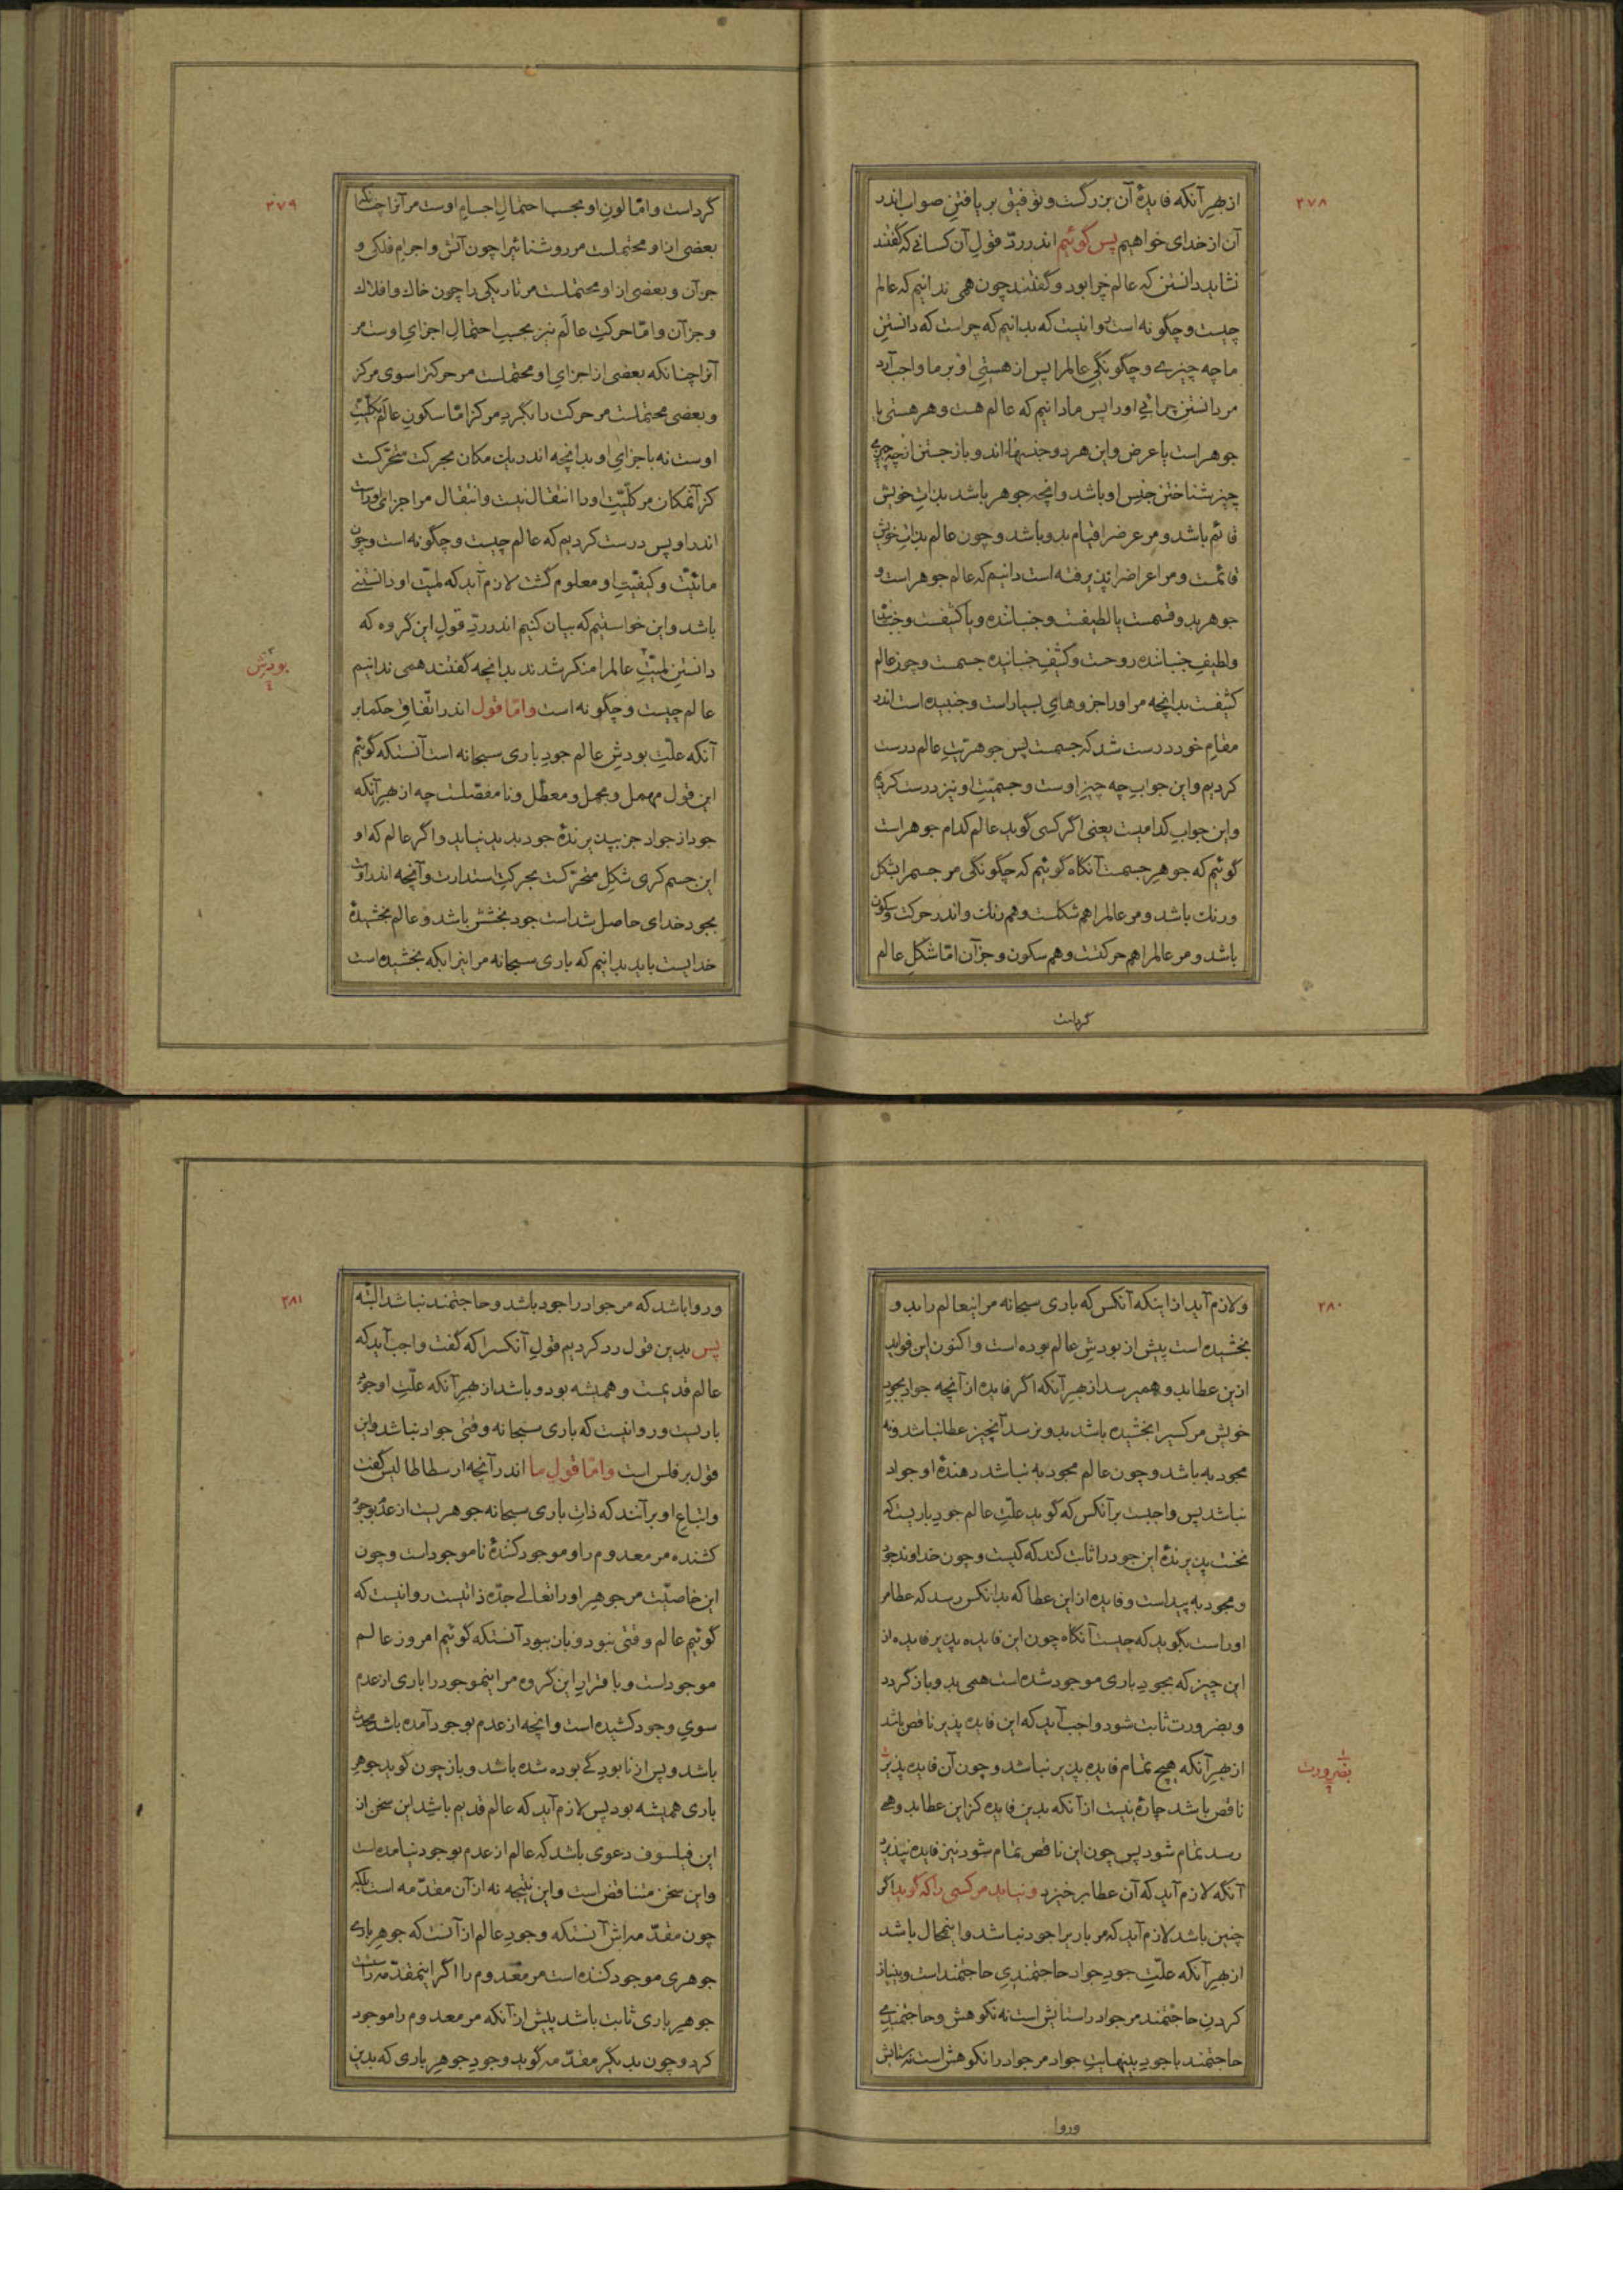 ۲۷۸
از بهر آنکه فایدهٔ آن بزرگست و توفیق بر یافتنِ صواب اندر
آن از خدای خواهیم پس گوئیم اندر ردّ قولِ آن کسانی که گفتند
نشاید دانستن که عالم چرا بود و گفتند چون همی ندانیم که عالم
چیست و چگونه است روا نیست که بدانیم که چراست که دانستنِ
ما چه چیزی و چگونگیِ عالمرا پس از هستیِ او بر ما واجب آرد
مر دانستنِ چرائیِ اورا پس ما دانیم که عالم هست و هر هستی یا
جوهر است یا عرض و این هر دو جنسها اند و باز جستن از چه چیزی
چیز شناختن جنسِ او باشد و انچه جوهر باشد بذاتِ خویش
قائم باشد و مر عرضرا قیام بدو باشد و چون عالم بذاتِ خویش
قائمست و مر اعراضرا پذیرفته است دانیم که عالم جوهر است و
جوهر بدو قسمست یا لطیفست و جنباننده و یا کثیفست و جنبنده
و لطیفِ جنباننده روحست و کثیفِ جنبانیده جسمست و چون عالم
کثیفست بدانچه مر اورا جزوهایِ بسیار است و جنبیده است اندر
مقامِ خود درست شد که جسمست پس جوهریّتِ عالم درست
کردیم و این جوابِ چه چیزِ اوست و جسمیّتِ او نیز درست کردیم
و این جوابِ کدامیست یعنی اگر کسی گوید عالم کدام جوهر است
گوئیم که جوهرِ جسمست آنگاه گوئیم که چگونگی مر جسمرا بشکل
و رنگ باشد و مر عالمرا هم شکلست و هم رنگ و اندر حرکت و سکون
باشد و مر عالمرا هم حرکتست و هم سکون و جز آن امّا شکلِ عالم
گرد است
۲۷۹
گرد است و امّا لونِ او بحسب احتمالِ اجزاءِ اوست مر آنرا چنانکه
بعضی از او محتملست مر روشنائیرا چون آتش و اجرامِ فلکی و
جز آن و بعضی از او محتملست مر تاریکی را چون خاك و افلاك
و جز آن و امّا حرکتِ عالَم نیز بحسبِ احتمالِ اجزایِ اوست مر
آنرا چنانکه بعضی از اجزایِ او محتملست مر حرکترا سوی مرکز
و بعضی محتملست مر حرکت را بگردِ مرکز امّا سکونِ عالَم بکلّیّتِ
اوست نه باجزایِ او بدانچه اندر یك مکان بحرکت متحرّکست
کز آنمکان مر کلّیّتِ اورا انتقال نیست و انتقال مر اجزای اوراست
اندر او پس درست کردیم که عالم چیست و چگونه است و چون
مائیّت و کیفیّتِ او معلوم گشت لازم آید که لمیّتِ او دانستنی
باشد و این خواستیم که بیان کنیم اندر ردّ قولِ این گروه که
دانستنِ لمیّتِ عالمرا منکر شدند بدانچه گفتند همی ندانیم
عالم چیست و چگونه است و امّا قول اندر اتّفاقِ حکما بر
بودِش
آنکه علّتِ بودشِ عالم جودِ باری سبحانه است آنستکه گوئیم
این قول مهمل و مجمل و معطّل و نا مفصّلست چه از بهر آنکه
جود از جواد جز بپذیرندهٔ جود پدید نیاید و اگر عالم که او
این جسم کری شکلِ متحرّکست بحرکتِ استدارت و آنچه اندر اوست
بجودِ خدای حاصل شد است جود بخشش باشد و عالم بخشیدهٔ
خدایست باید بدانیم که باری سبحانه مر اینرا بکه بخشیده است
۲۸۰
و لازم آید از اینکه آنکس که باری سبحانه مر اینعالم را بدو
بخشیده است پیش از بودشِ عالم بوده است و اکنون این فواید
ازین عطا بدو همیرسد از بهر آنکه اگر فایده از آنچه جواد بجودِ
خویش مر کسیرا بخشیده باشد بدو نرسد آنچیز عطا نباشد و نه
مجود به باشد و چون عالم مجود به نباشد دهندهٔ او جواد
نباشد پس واجبست بر آنکس که گوید علّتِ عالم جودِ باریست که
نخست پذیرندهٔ این جود را ثابت کند که کیست و چون خداوندِ جود
و مجود به پیداست و فایده از این عطا که بدانکس رسد که عطا مر
اوراست بگوید که چیست آنگاه چون این فایده پذیر فایده از
این چیز که بجودِ باری موجود شده است همی بدو باز گردد
و بضرورت ثابت شود واجب آید که این فایده پذیر ناقص باشد
از بهر آنکه هیچ تمام فایده پذیر نباشد و چون آن فایده پذیر
بضرورت
ناقص باشد چارهٔ نیست از آنکه بدین فایده کز این عطا بدو همی
رسد تمام شود پس چون این ناقص تمام شود نیز فایده نپذیرد
آنکه لازم آید که آن عطا بر خیزد و نباید مر کسی را که گوید اگر
چنین باشد لازم آید که مر باریرا جود نباشد و اینمحال باشد
از بهر آنکه علّتِ جودِ جواد حاجتمندیِ حاجتمند است و بینیاز
کردنِ حاجتمند مر جواد را ستایش است نه نکوهش و حاجتمندیِ
حاجتمند با جودِ بینهایتِ جواد مر جواد را نکوهش است نه ستایش
و روا
۲۸۱
و روا باشد که مر جواد را جود باشد و حاجتمند نباشد البتّه
پس بدین قول رد کردیم قولِ آنکسرا که گفت واجب آید که
عالم قدیمست و همیشه بود و باشد از بهر آنکه علّتِ او جودِ
باریست و روا نیست که باری سبحانه وقتی جواد نباشد و این
قول برقلس است و امّا قولِ ما اندر آنچه ارسطاطالیس گفت
و اتباعِ او بر آنند که ذاتِ باری سبحانه جوهریست از عدم بوجود
کشنده مر معدوم را و موجود کنندهٔ نا موجود است و چون
این خاصیّت مر جوهرِ اورا تعالی جدّه ذاتیست روا نیست که
گوئیم عالم وقتی نبود و باز ببود آنستکه گوئیم امروز عالم
موجود است و باقرارِ این گروه مر اینموجود را باری از عدم
سویِ وجود کشیده است و انچه از عدم بوجود آمده باشد محدث
باشد و پس از نابودگی بوده شده باشد و باز چون گوید جوهرِ
باری همیشه بود پس لازم آید که عالم قدیم باشد این سخن از
این فیلسوف دعوی باشد که عالم از عدم بوجود نیامده است
و این سخن متناقض است و این نتیجه نه از آن مقدّمه است بلکه
چون مقدّمه اش آنستکه وجودِ عالم از آنست که جوهرِ باری
جوهری موجود کننده است مر معدوم را اگر اینمقدّمه راست
جوهرِ باری ثابت باشد پیش از آنکه مر معدوم را موجود
کرد و چون بدیگر مقدّمه گوید وجودِ جوهرِ باری که بدین